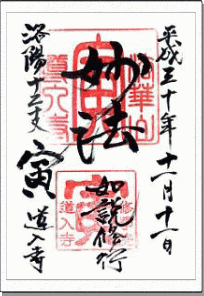 平成三十年十一月十一日
妙法
如説修行
洛陽十二支
寅 道入寺
道入寺